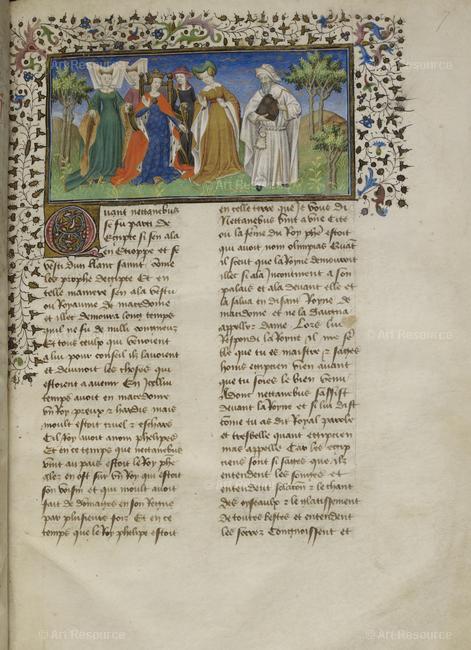 Quant nectanebus
se fu parti de
Egipte si sen ala
en Etioppe et se
vesti dun blanc samit come
les prophe degipte Et en
telle maniere sen ala vestu
ou Royaume de macedoine
et illec demoura long temps
quil ne fu de nullui congneuz
Et tous ceulx qui venoient
a lui pour conseil ilz lavoient
et devinoit les choses qui
estoient a avenir En Icellui
temps avoit en macedoine
vn Roy preux et hardis mais
moult estoit cruel et eschars
Cil Roy avoit a nom phelipes
Et en ce temps que nectanebus
vint au pais estoit le Roy phe
alez en ost sur vn Roy qui est
son voisin et qui moult avoit
fait de domaiges en son Regne
par plusieurs foiz Et en ce
temps que le Roy phelipe estoit
en celle terre que Je vous di
Nectanebus vint a vne Cite
ou la feme du Roy phe estoit
qui avoit nom olimpias Quant
il sceut que la Royne demouroit
illec si ala Incontinent a son
palais et ala devant elle et
la salua en disant Royne de
macedoine et ne la daigna
appeller dame Lors lui
Respondi la Royne il me se
ble que tu es maistre et faittes
homs egipcien vien avant
que tu soies le bien venu
Adonc nectanebus sassist
devant la Royne et si lui dist
come tu as dit Royal parole
et tresbelle quant egipcien
mas appelle Car les egip
ciens sont si faittes que ilz
entendent les songes et
entendent et le chant
des oyseaulx et le glatissement
de toutes bestes et entendent
les secrez Congnoissent et
© Art Resource
© Art Resource
© Art Resource
© Art Resource
© Art Resource
© Art Resource